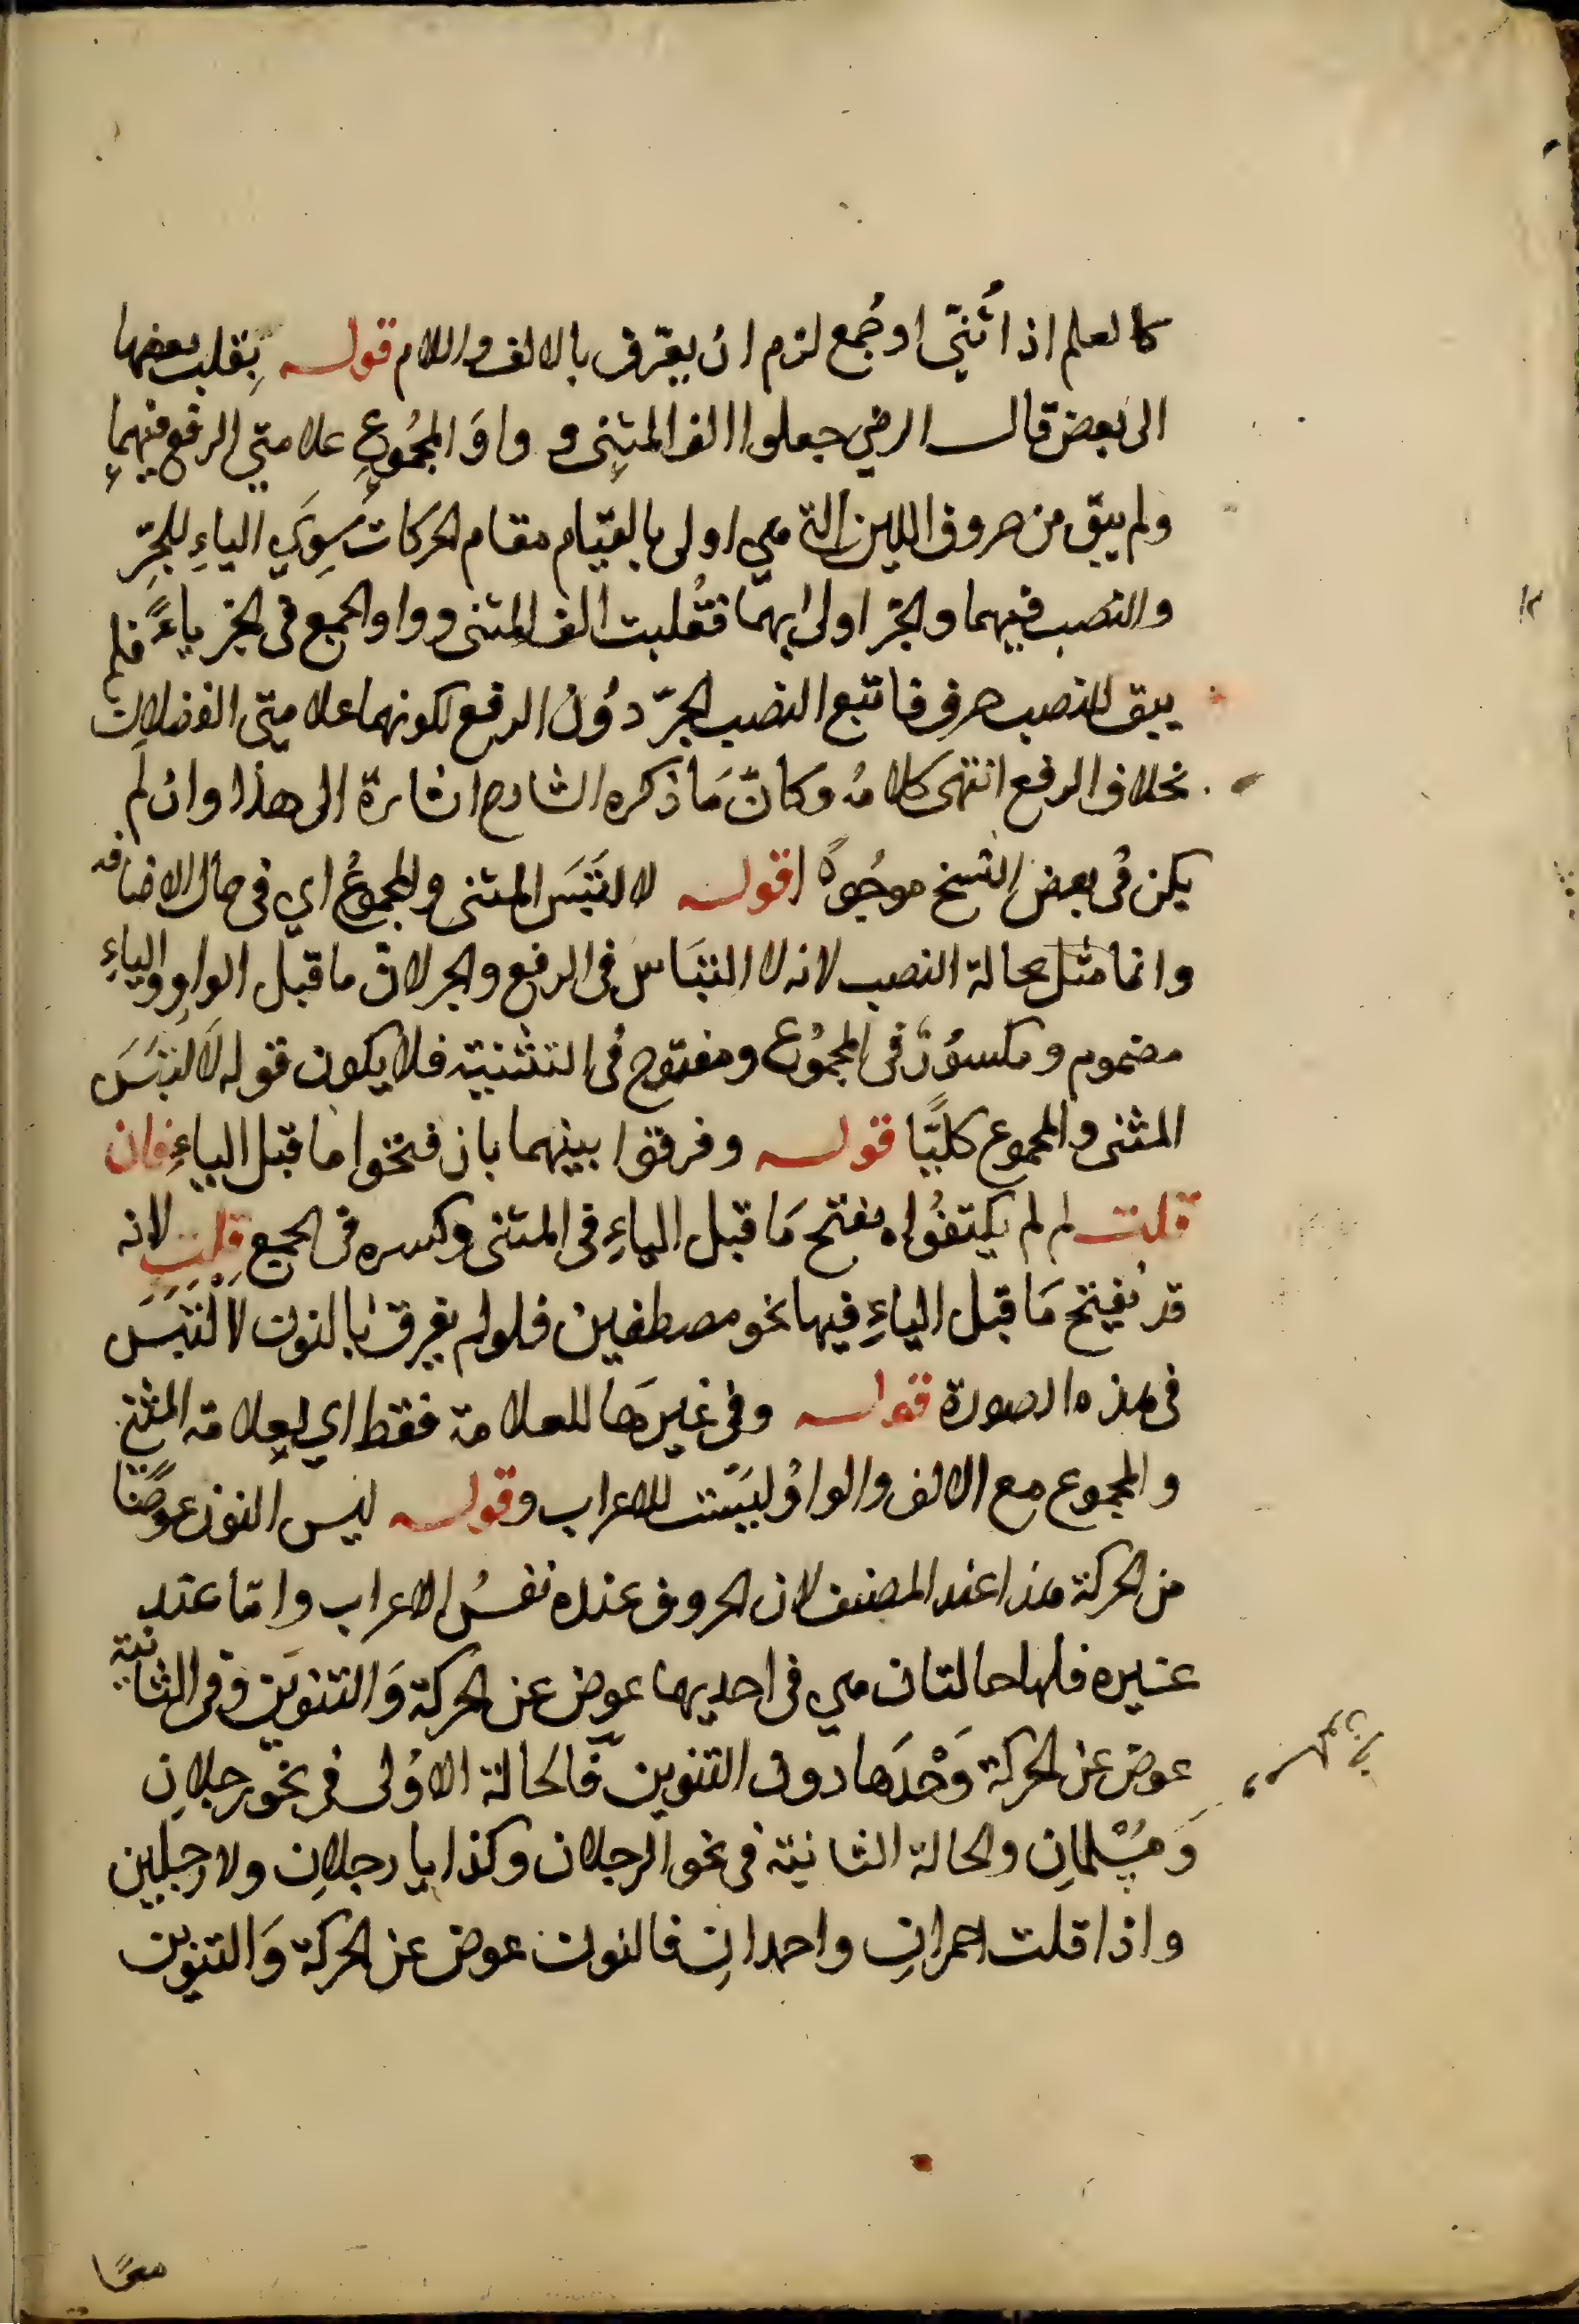 كالعلم اذا ثُنّي او جُمع لزم ان يعرّف بالالف واللام قوله بِقلب بعضها
الى بعض قال الرضي جعلوا الف المثنى و واوَ المجمُوعِ علامتي الرفع فيهما
ولم يبق من حروف اللين التي هي اولى بالقيام مقام الحركات سِوَي الياءِ للجرِّ
والنصب فيهما والجرّ اولى بهما فقُلبت الف المثنى وواو الجمع فى الجرّ ياءً فلم
يبق للنصب حرف فاتبع النصب الجرّ دوُن الرفع لكونهما علامتى الفضلات
بخلاف الرفع انتهى كلامُه وكانّ مَا ذكره الشارح اشارة الى هذا وان لم
يكن فى بعض النسخ موجُودًا قوله لالتَبَسَ المثنى والمجموعُ اي فى حال الاضافه
وانما مثل بحالة النصب لانه لا التبَاس فى الرفع والجر لانّ ما قبل الواوِ والياءِ
مضموم ومكسوُر فى المجموُع ومفتوح فى التثنية فلا يكون قوله لالتبَسَ
المثنى والمجموع كليًّا قوله وفرقوا بينهما بان فتحوا ما قبل الياءِ فان
قلت لم لم يكتفُوا بفتح مَا قبل الياءِ فى المثنى وكسره فى الجمع قلت لانه
قد يُفتح مَا قبل الياءِ فيها نحو مصطفَيْنَ فلو لم يفرق بالنون لاَلْتَبَسَ
فى هذه الصورة قوله وفى غيرهَا للعلامة فقط اي لعلامة المثنى
والمجموع مع الالف والواوُ ليسَت للاعراب وقوله ليس النون عوضًا
من الحركة هذا عند المصنف لان الحروف عنده نفسُ الاعراب وامّا عند
غيره فلها حالتان هي فى احديهما عوض عن الحركة وَالتنوين وفى الثانية
عوض عن الحركة وَحْدَها دون التنوين فالحالة الاوُلى فى نحو رجلانِ
وَمُسْلمانِ والحالة الثانية فى نحو الرجلان وكذا يا رجلانِ ولا رجلين
واذا قلت احمرانِ واحمدانِ فالنون عوض عن الحركة وَالتنوين
معًا